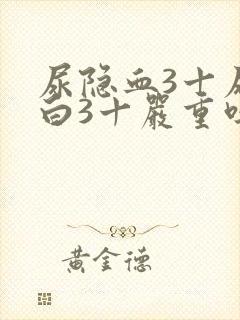 尿隐血3十尿
白3十严重吗
黄金德